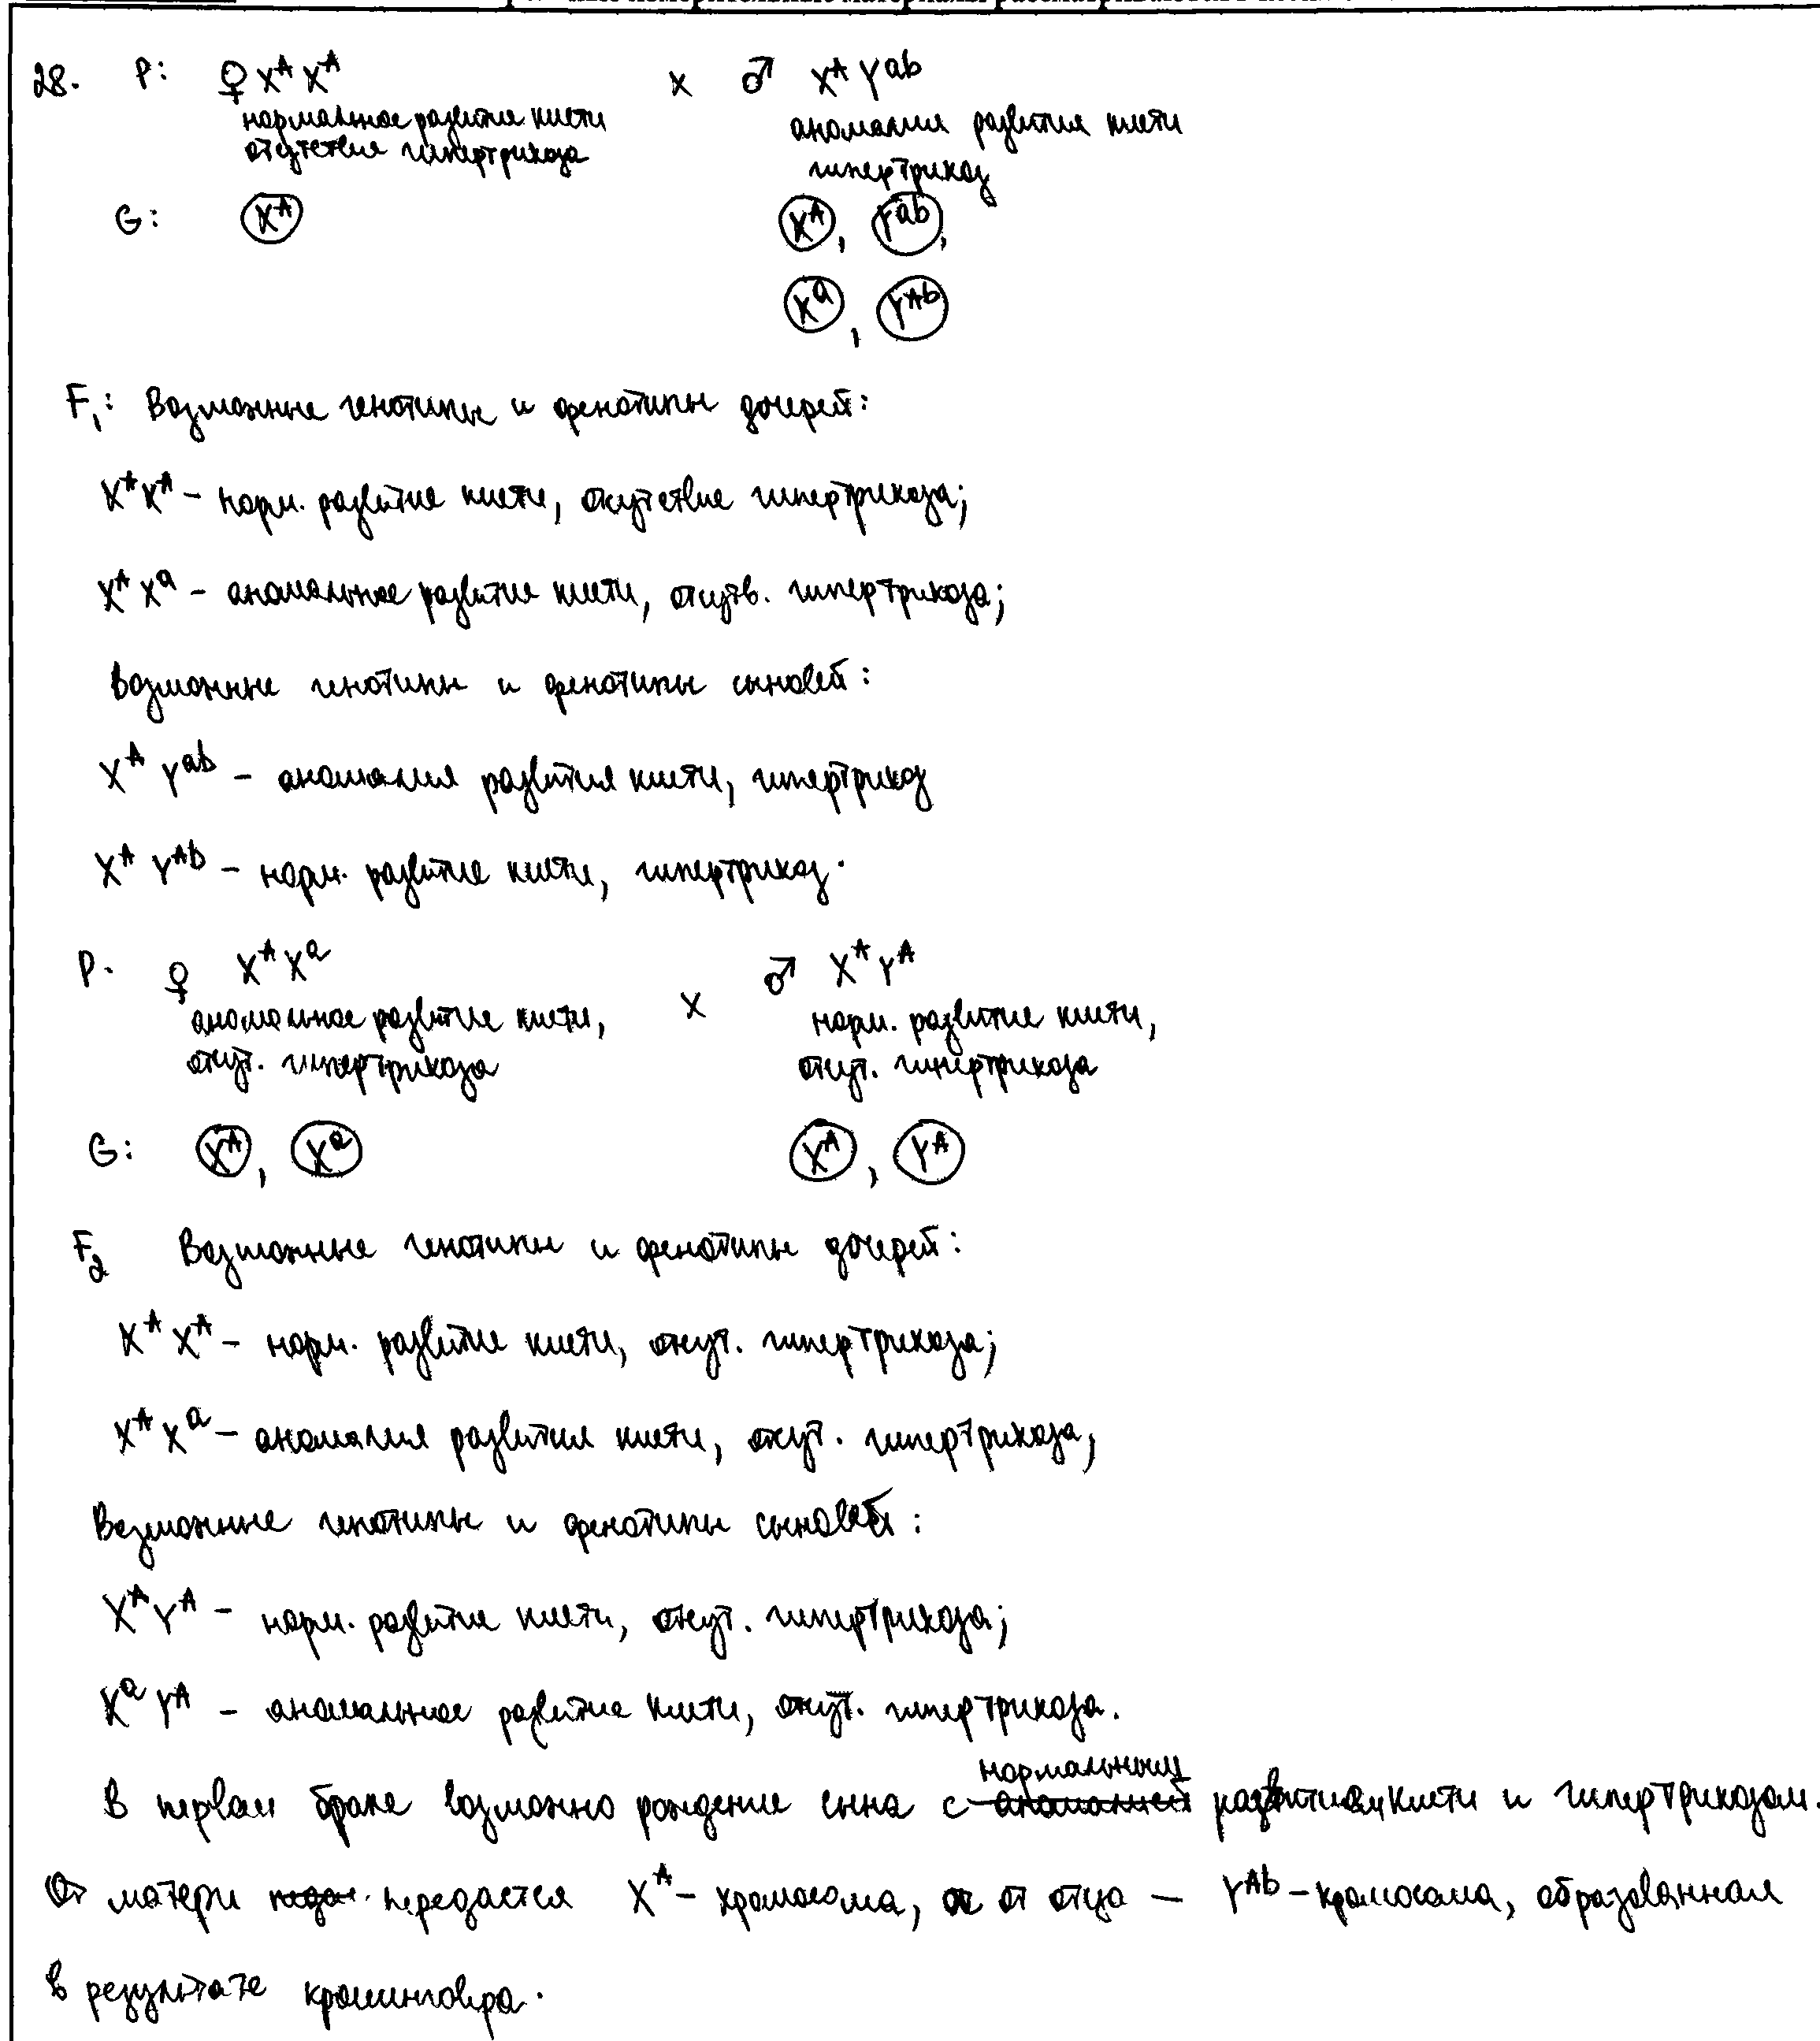 28. P: ♀ X^A X^A × ♂ X^A Y^ab
нормальное развитие кисти аномалия развития кисти
отсутствия гипертрихоза гипертрихоз
G: X^A X^A, Y^ab,
X^a, Y^Ab
F₁: Возможные генотипы и фенотипы дочерей:
X^A X^A – норм. развитие кисти, отсутствие гипертрихоза;
X^A X^a – аномальное развитие кисти, отсутв. гипертрихоза;
возможные генотипы и фенотипы сыновей:
X^A Y^ab – аномалия развития кисти, гипертрихоз
X^A Y^Ab – норм. развитие кисти, гипертрихоз.
P. ♀ X^A X^a × ♂ X^A Y^A
аномальное развитие кисти, норм. развитие кисти,
отсут. гипертрихоза отсут. гипертрихоза
G: X^A, X^a X^A, Y^A
F₂ Возможные генотипы и фенотипы дочерей:
X^A X^A – норм. развитие кисти, отсут. гипертрихоза;
X^A X^a – аномалия развития кисти, отсут. гипертрихоза;
Возможные генотипы и фенотипы сыновей:
X^A Y^A – норм. развитие кисти, отсут. гипертрихоза;
X^a Y^A – аномальное развитие кисти, отсут. гипертрихоза.
В первом браке возможно рождение сына с нормальным развитием кисти и гипертрихозом.
От матери передается X^A – хромосома, от отца – Y^Ab – хромосома, образованная
в результате кроссинговера.